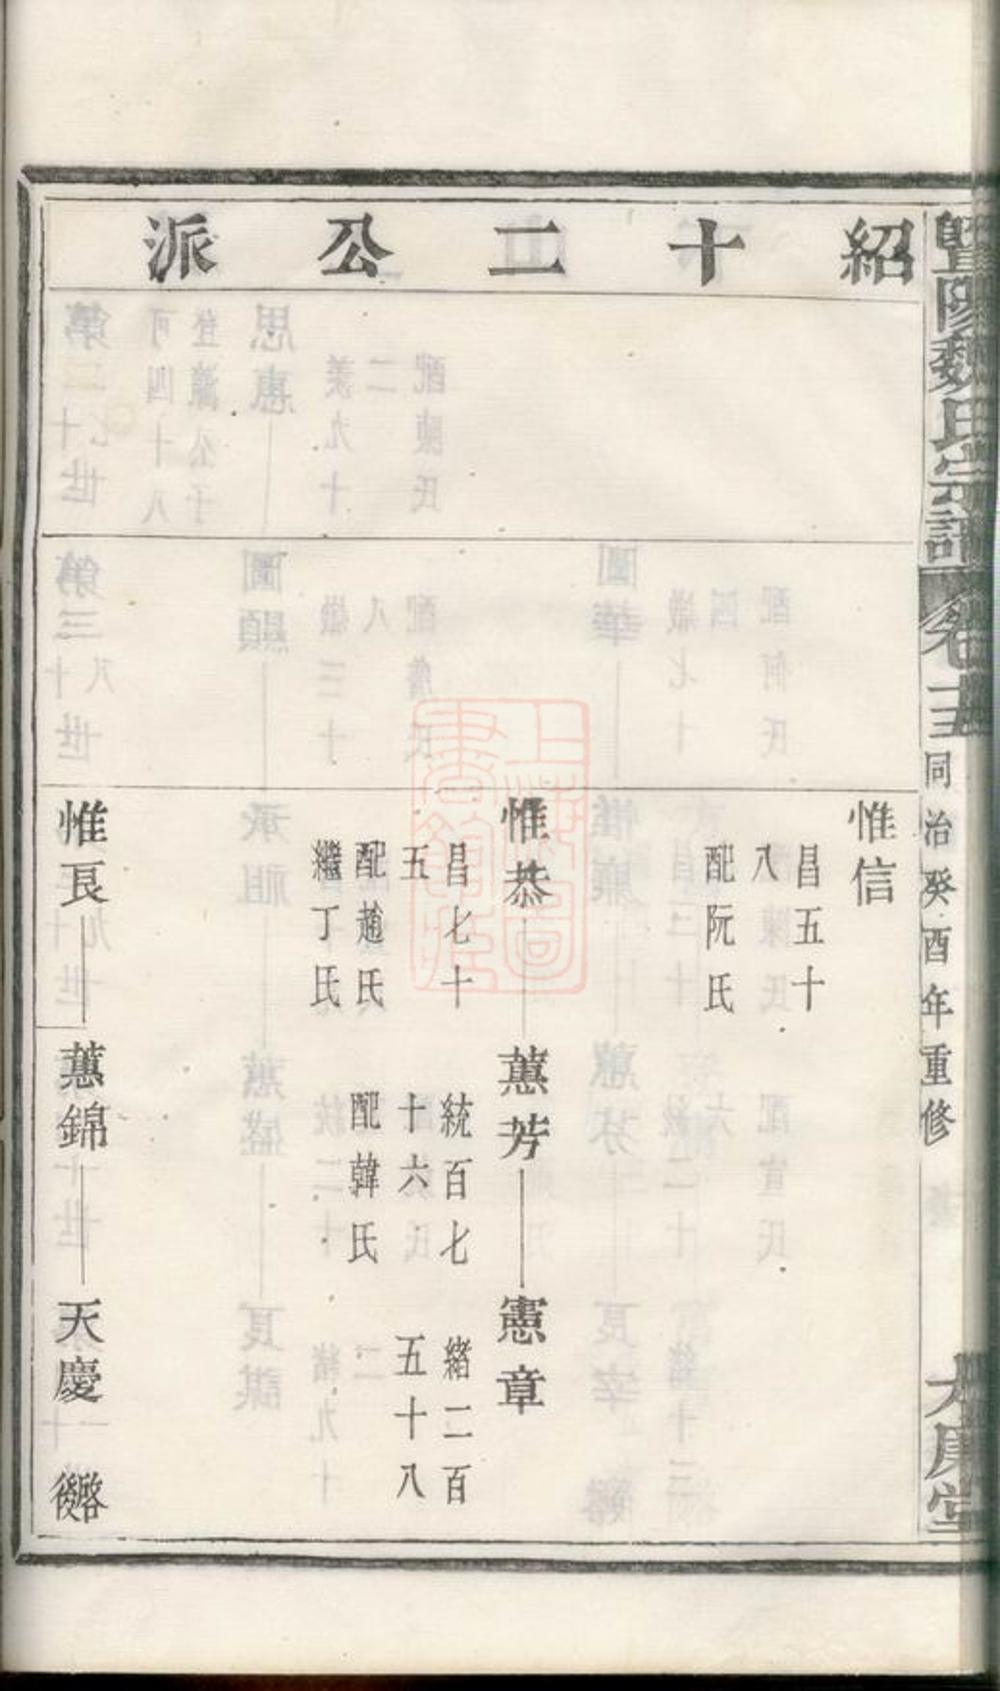 暨陽魏氏宗譜
同治癸酉年重修
紹十二公派
惟信
昌五十
八
配阮氏
惟恭
蕙芳
憲章
昌七十
五
配趙氏
繼丁氏
統百七
十六
配韓氏
緒二百
五十八
惟良
蕙錦
天慶
啓後
上海圖書館藏